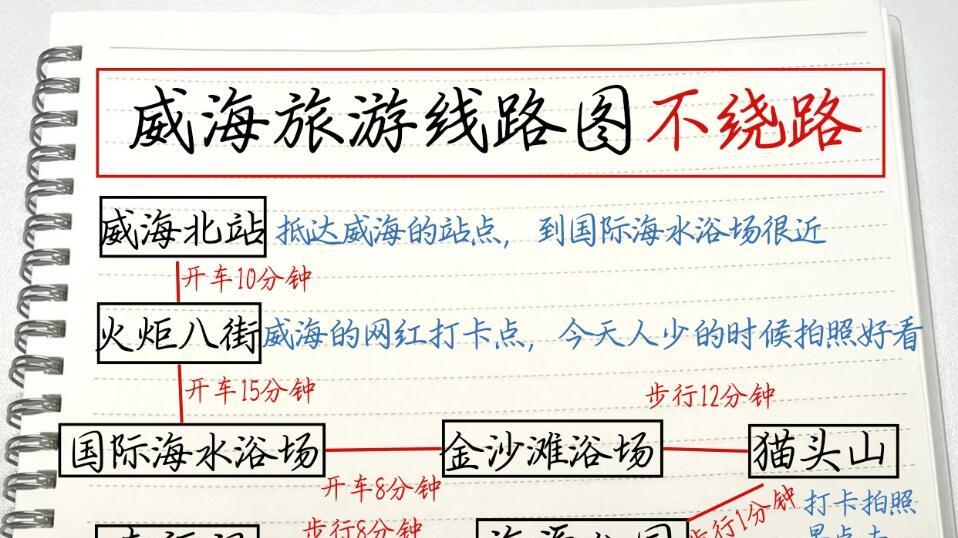 威海旅游线路图不绕路
威海北站 抵达威海的站点，到国际海水浴场很近
开车10分钟
火炬八街 威海的网红打卡点，今天人少的时候拍照好看
开车15分钟
步行12分钟
国际海水浴场 金沙滩浴场 猫头山
开车8分钟
步行1分钟
打卡拍照
步行8分钟